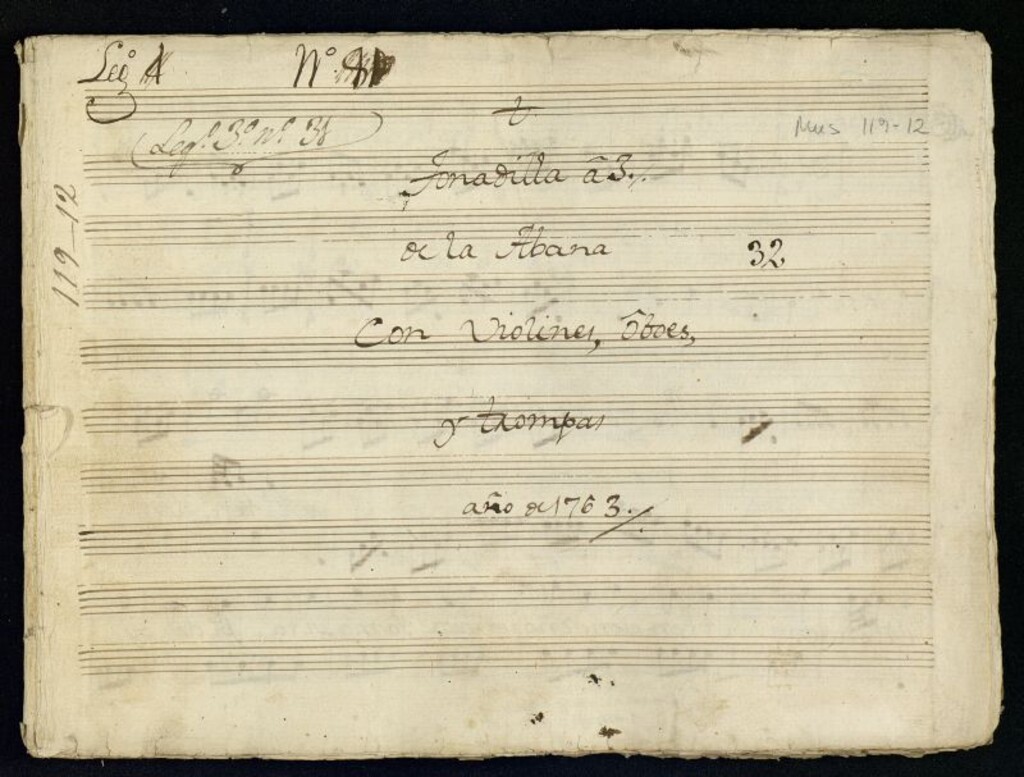 Leg.º
Nº
t
(Leg.º 3.º n.º 31)
Mus 119-12
Tonadilla â 3.
119-12
de la Abana
32
Con Violines, Oboes,
y trompas
año de 1763.